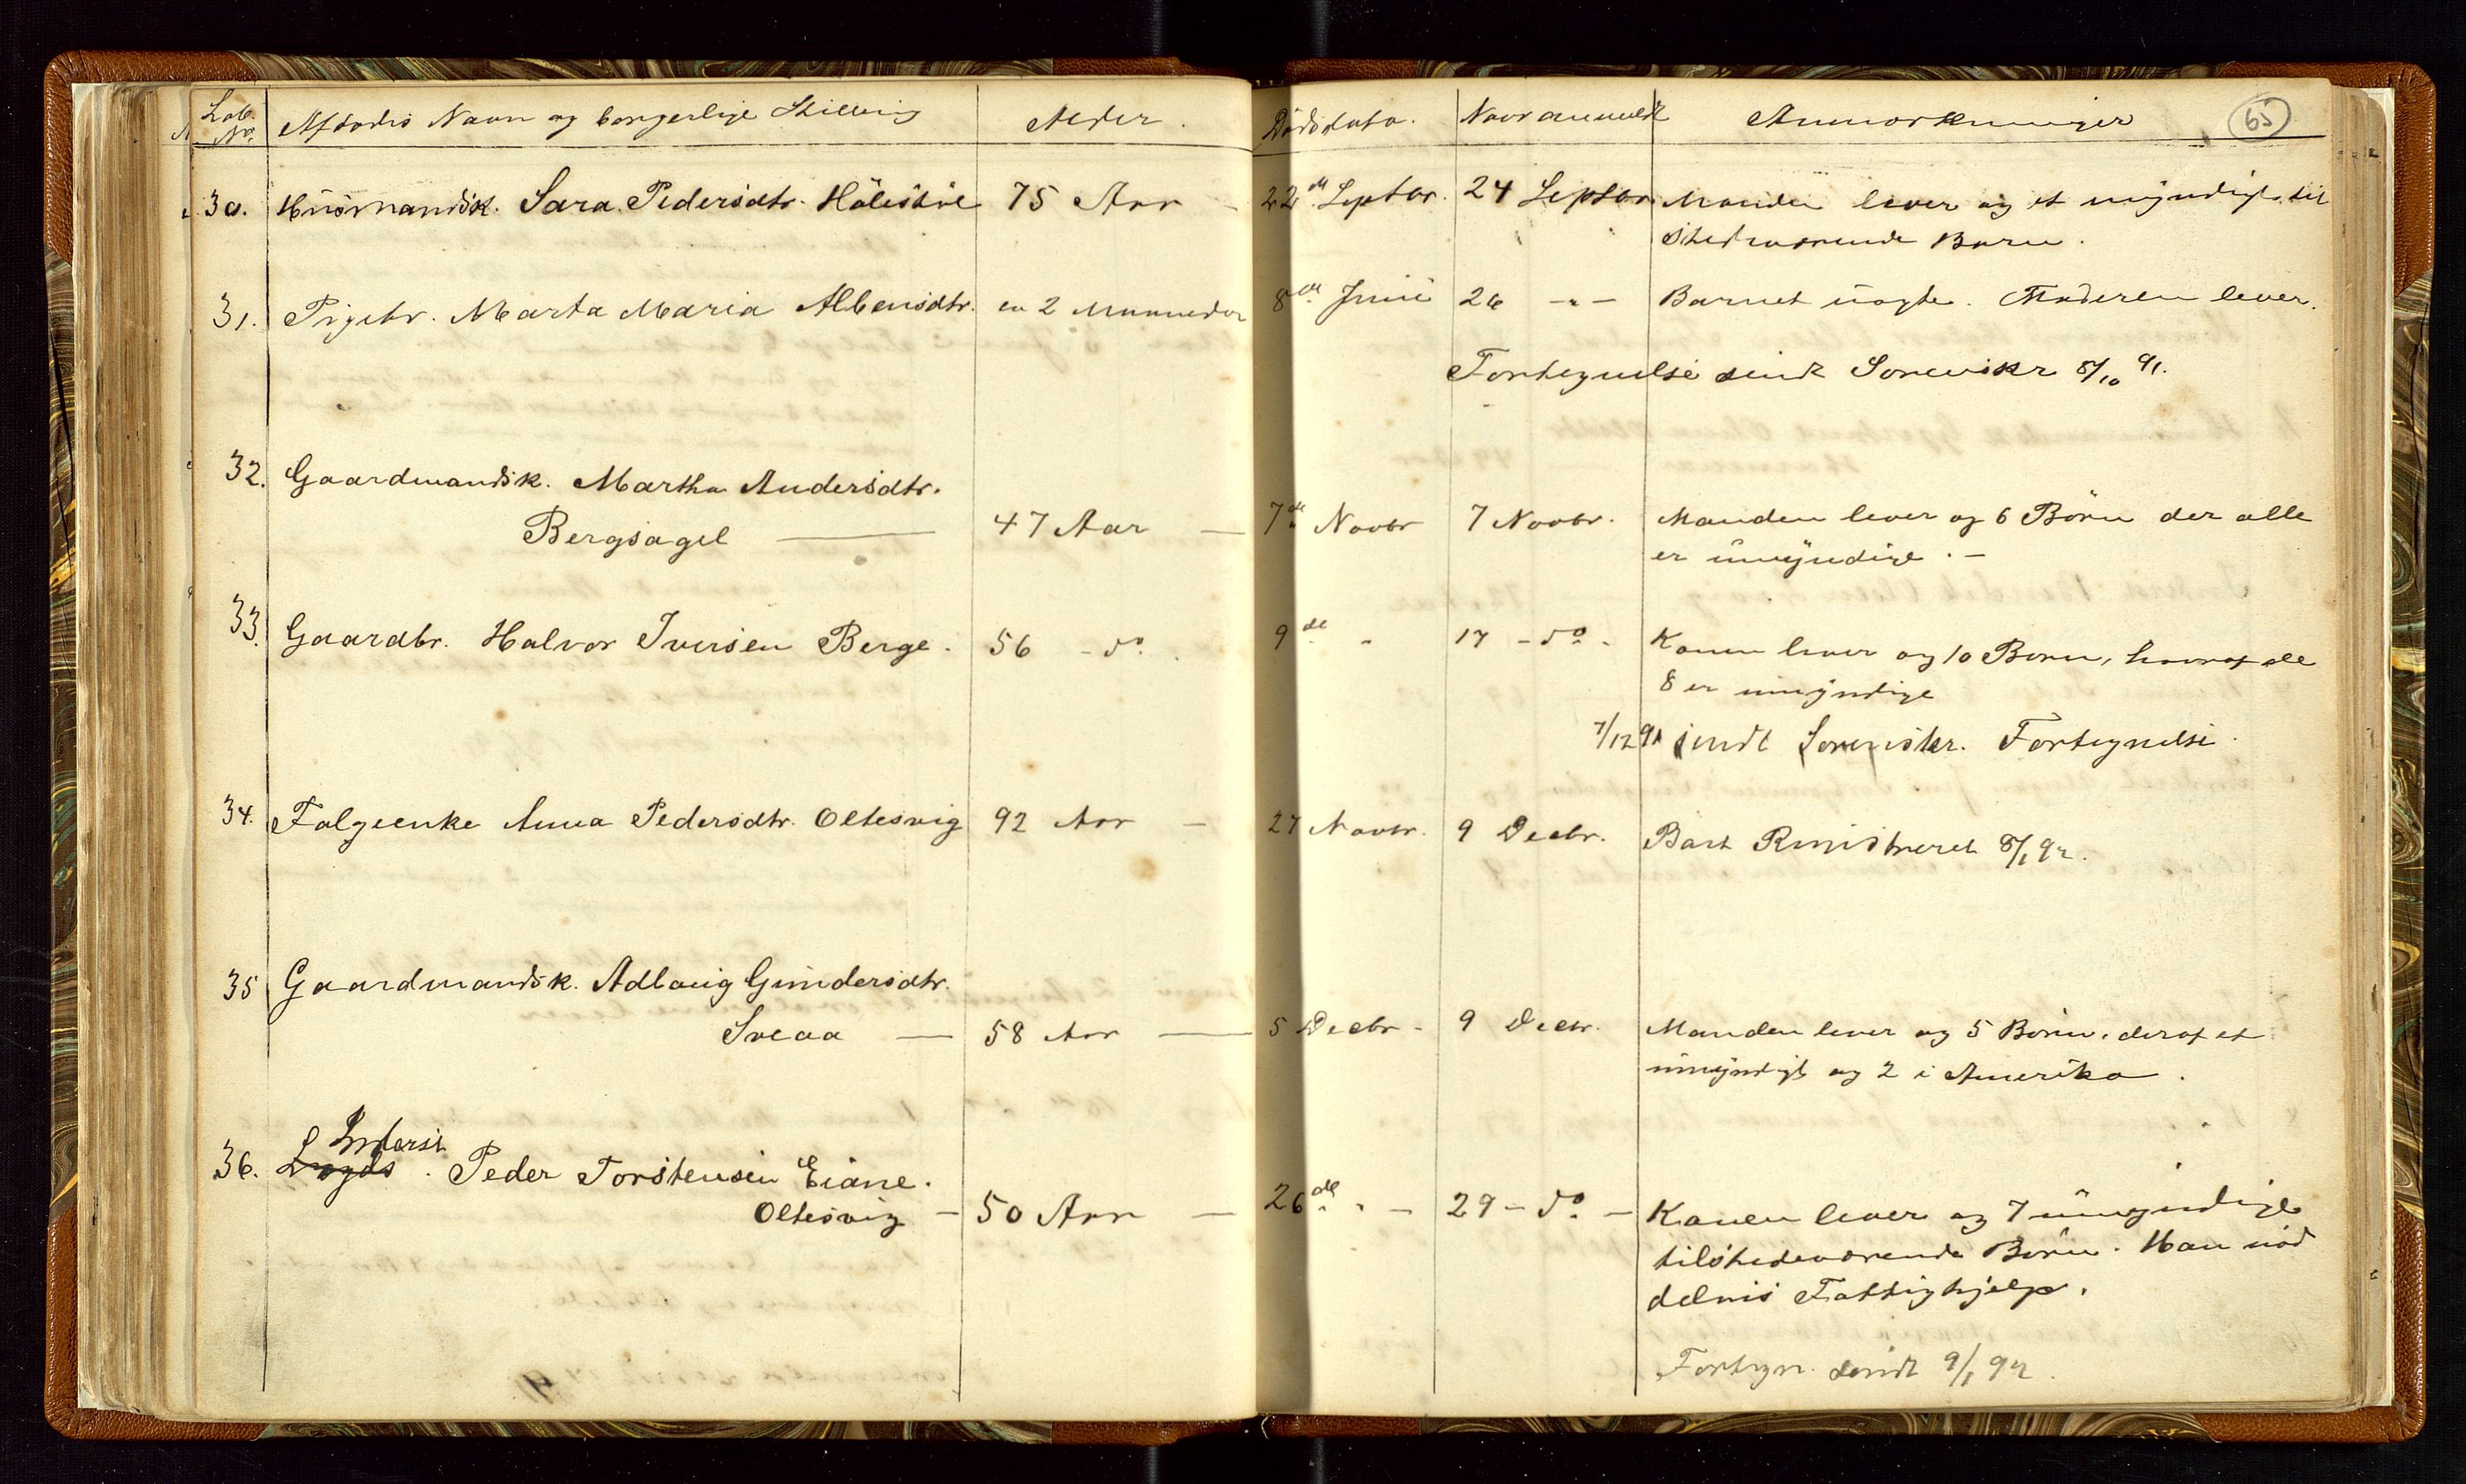 Løb. No. Afdødes Navn og borgerlige Stilling Alder. Dødsdato. Naar anmeldt Anmærkninger 65
30. Husmandsk. Sara Pedersdtr. Hölesöie 75 Aar - 22de Septbr. 24 Septbr. Manden lever og et myndigt til
stedværende Barn.
31. Pigebr. Marta Maria Albensdtr. en 2 Maaneder 8de Juni 26 - " - Barnet uægte. Moderen lever.
Fortegnelse sendt Sorenskr 8/10 91.
32. Gaardmandsk. Martha Andersdtr.
Bergsagel — 47 Aar — 7de Novbr 7 Novbr. Manden lever og 6 Börn der alle
er umyndige. -
33. Gaardbr. Halvor Iversen Berge. 56 - do. 9de " 17 - do - Konen lever og 10 Börn, hvoraf de
8 er umyndige
7/12 91 sendt Sorenskr. Fortegnelse.
34. Folgeenke Anna Pedersdtr. Oltesvig 92 Aar - 27 Novbr. 9 Decbr. Bort Registreret 8/1 92.
35 Gaardmandsk. Adlaug Gundersdtr.
Sveaa — 58 Aar — 5 Decbr - 9 Decbr. Manden lever og 5 Börn, deraf et
umyndigt og 2 i Amerika.
Inderst
36. Lægds. Peder Torstensen Eiane.
Oltesvig - 50 Aar - 26de " - 29 - do - Konen lever og 7 umyndige
tilstedeværende Börn. Han nöd
delvis Fattighjælp.
Fortegn. sendt 9/1 92.